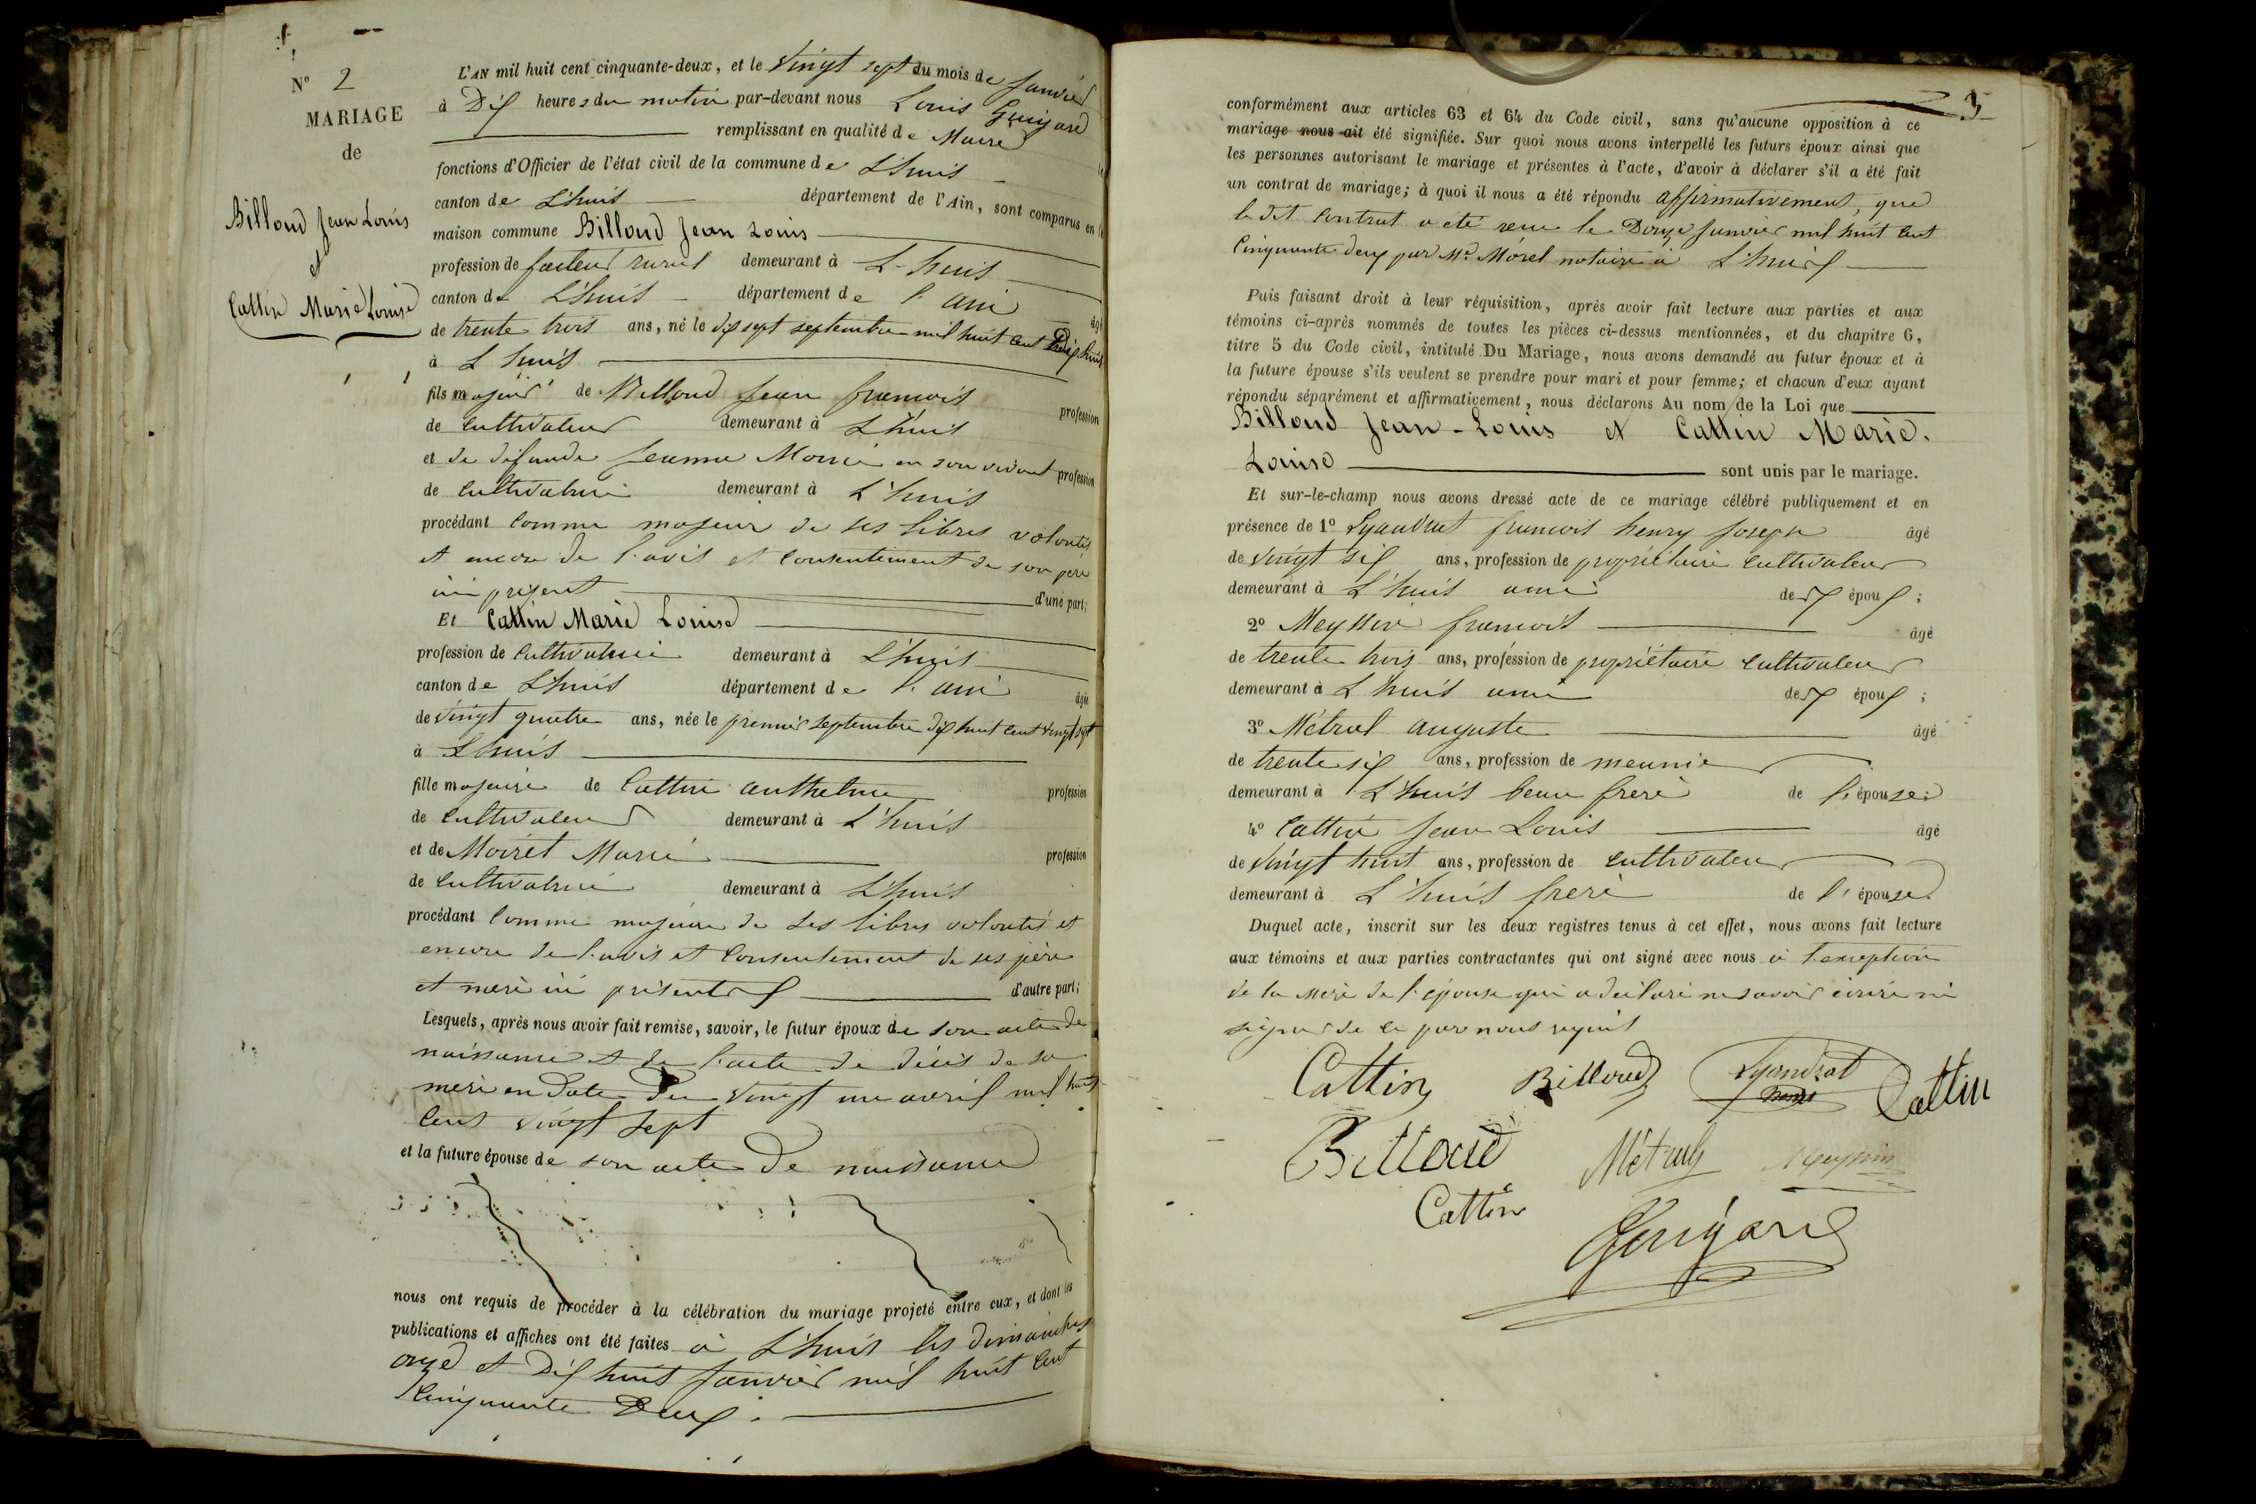 N° 2
MARIAGE
de
Billoud Jean Louis
et
Cattin Marie Louise
L'AN mil huit cent cinquante-deux, et le vingt sept du mois de Janvier
à Dix heures du matin par-devant nous Louis Guigard
remplissant en qualité de Maire
fonctions d'Officier de l'état civil de la commune de L'huis
canton de L'huis département de l'Ain, sont comparus en la
maison commune Billoud Jean Louis
profession de facteur rural demeurant à L'huis
canton de L'huis département de l'ain âgé
de trente trois ans, né le dix sept septembre mil huit cent Dix huit
à L'huis
fils majeur de Billoud Jean francois profession
de cultivateur demeurant à L'huis
et de défunde Jeanne Moirié en son vivant profession
de cultivatrice demeurant à L'huis
procédant comme majeur de ses libres volontés
et encore de l'avis et consentement de son père
ici present d'une part;
Et Cattin Marie Louise
profession de cultivatrice demeurant à L'huis
canton de L'huis département de l'ain âgée
de vingt quatre ans, née le premier septembre dix huit cent vingt sept
à L'huis
fille majeure de Cattin anthelme profession
de cultivateur demeurant à L'huis
et de Moiret Marie profession
de cultivatrice demeurant à L'huis
procédant comme majeure de ses libres volontés et
encore de l'avis et consentement de ses père
et mère ici présents d'autre part;
Lesquels, après nous avoir fait remise, savoir, le futur époux de son acte de
naissance et de l'acte de décès de sa
mère en date du vingt un avril mil huit
cent vingt sept
et la future épouse de son acte de naissance
nous ont requis de procéder à la célébration du mariage projeté entre eux, et dont les
publications et affiches ont été faites à L'huis les dimanches
onze et Dix huit Janvier mil huit cent
Cinquante Deux.
conformément aux articles 63 et 64 du Code civil, sans qu'aucune opposition à ce
mariage nous ait été signifiée. Sur quoi nous avons interpellé les futurs époux ainsi que
les personnes autorisant le mariage et présentes à l'acte, d'avoir à déclarer s'il a été fait
un contrat de mariage; à quoi il nous a été répondu affirmativement, que
le dit contrat a été reçu le Douze Janvier mil huit cent
Cinquante deux par Me Morel notaire à L'huis
Puis faisant droit à leur réquisition, après avoir fait lecture aux parties et aux
témoins ci-après nommés de toutes les pièces ci-dessus mentionnées, et du chapitre 6,
titre 5 du Code civil, intitulé Du Mariage, nous avons demandé au futur époux et à
la future épouse s'ils veulent se prendre pour mari et pour femme; et chacun d'eux ayant
répondu séparément et affirmativement, nous déclarons Au nom de la Loi que
Billoud Jean-Louis et Cattin Marie.
Louise sont unis par le mariage.
Et sur-le-champ nous avons dressé acte de ce mariage célébré publiquement et en
présence de 1° Lyandrat francois henry Joseph âgé
de vingt six ans, profession de propriétaire cultivateur
demeurant à L'huis ami des époux;
2° Meyssin francois âgé
de trente trois ans, profession de propriétaire cultivateur
demeurant à L'huis ami des époux;
3° Métral auguste âgé
de trente six ans, profession de meunier
demeurant à L'huis beau frère de l'épouse;
4° Cattin Jean Louis âgé
de vingt huit ans, profession de cultivateur
demeurant à L'huis frère de l'épouse
Duquel acte, inscrit sur les deux registres tenus à cet effet, nous avons fait lecture
aux témoins et aux parties contractantes qui ont signé avec nous à l'exception
de la mère de l'épouse qui a déclaré ne savoir écrire ni
signer de ce par nous requis
Cattin Billoud Lyandrat Cattin
Billoud Métral Meyssin
Cattin
Guigard